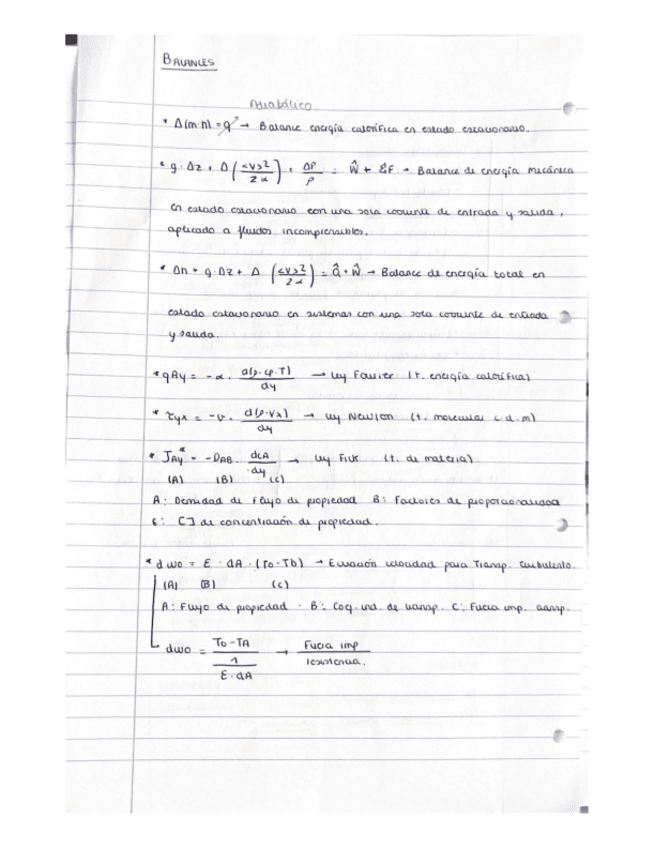 BALANCES
Adiabático
* Δ(m·h) = q → Balance energía calorífica en estado estacionario.
* g·Δz + Δ(<v>²/2α) + Δp/ρ = Ŵ + ΣF → Balance de energía mecánica
en estado estacionario con una sola corriente de entrada y salida,
aplicado a fluidos incompresibles.
* Δh + g·Δz + Δ(<v>²/2α) = Q̂ + Ŵ → Balance de energía total en
estado estacionario en sistemas con una sola corriente de entrada
y salida.
* qAy = -α · d(ρ·cp·T)/dy → Ley Fourier (t. energía calorífica)
* τyx = -υ · d(ρ·vx)/dy → Ley Newton (t. molecular c.d.m)
* JAy* = -DAB · dcA/dy → Ley Fick (t. de materia)
(A) (B) (C)
A: Densidad de flujo de propiedad B: Factores de proporcionalidad
C: [] de concentración de propiedad.
* dwo = ε · dA · (To-Tb) → Ecuación velocidad para Transp. turbulento.
(A) (B) (C)
A: Flujo de propiedad · B: Coef. ind. de transp. C: Fuerza imp. transp.
dwo = To-TA / 1/ε·dA → Fuerza imp / resistencia.